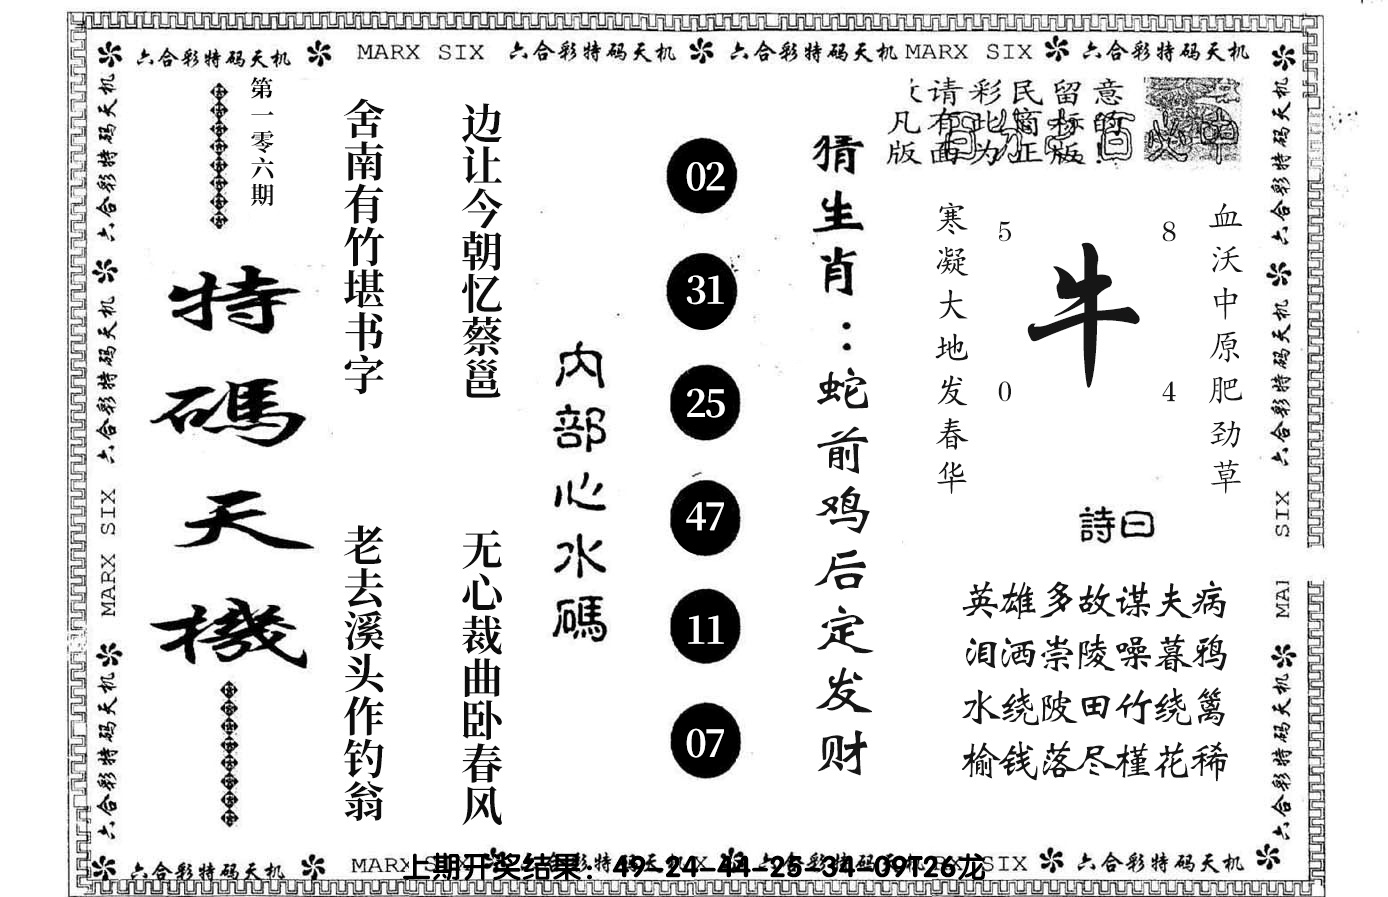 六合彩特码天机 MARX SIX 六合彩特码天机 六合彩特码天机 MARX SIX 六合彩特码天机
六合彩特码天机
六合彩特码天机
MARX SIX
六合彩特码天机
第一零六期
特碼天機
舍南有竹堪书字
老去溪头作钓翁
边让今朝忆蔡邕
无心裁曲卧春风
内部心水碼
02
31
25
47
11
07
猜生肖：蛇前鸡后定发财
请彩民留意
凡有此商标的
版面为正版!
寒凝大地发春华
5
8
牛
0
4
血沃中原肥劲草
詩曰
英雄多故谋夫病
泪洒崇陵噪暮鸦
水绕陂田竹绕篱
榆钱落尽槿花稀
六合彩特码天机
六合彩特码天机
SIX
MAI
六合彩特码天机
六合彩特码天机 MARX SIX 六合彩特码天机 六合彩特码天机 SIX 六合彩特码天机
上期开奖结果：49-24-44-25-34-09T26龙